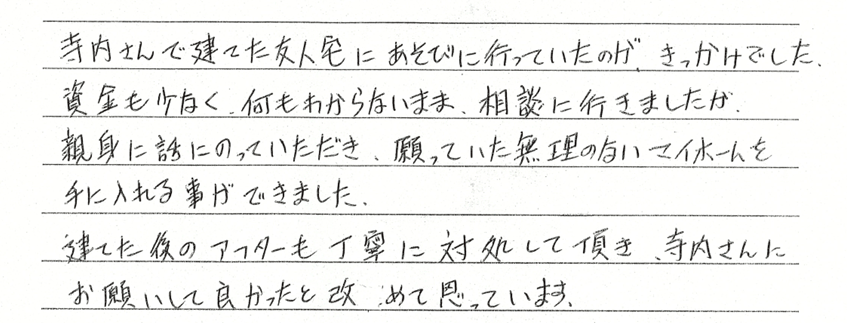 寺内さんで建てた友人宅にあそびに行っていたのが、きっかけでした。
資金も少なく、何もわからないまま、相談に行きましたが、
親身に話にのっていただき、願っていた無理のないマイホームを
手に入れる事ができました。
建てた後のアフターも丁寧に対処して頂き、寺内さんに
お願いして良かったと改めて思っています。